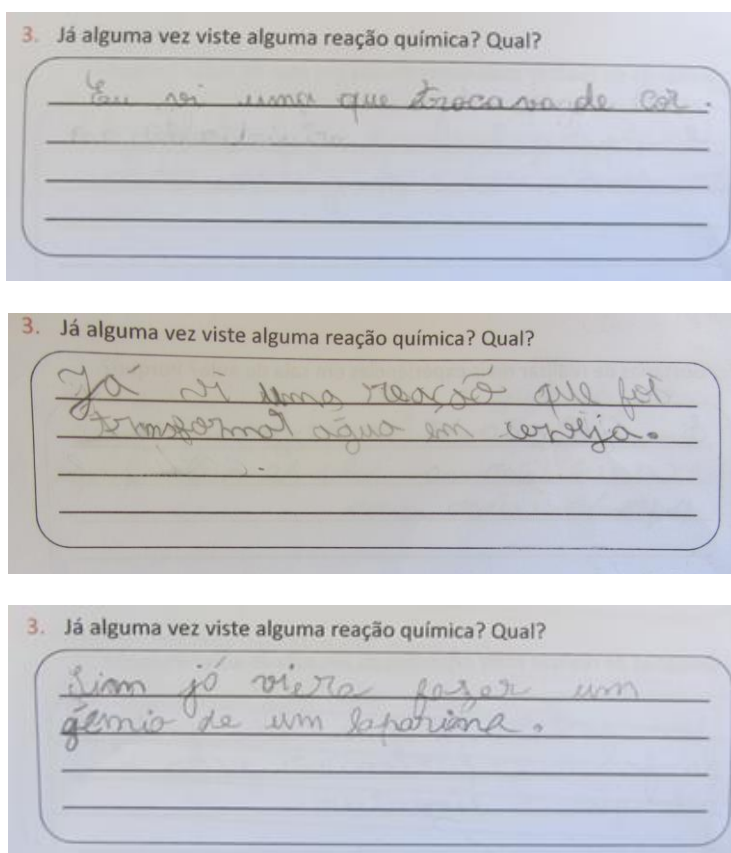 3. Já alguma vez viste alguma reação química? Qual?
Eu vi uma que trocava de cor.
3. Já alguma vez viste alguma reação química? Qual?
Já vi uma reação que foi
trnsformar água em
3. Já alguma vez viste alguma reação química? Qual?
Sim já viera faser um
de um